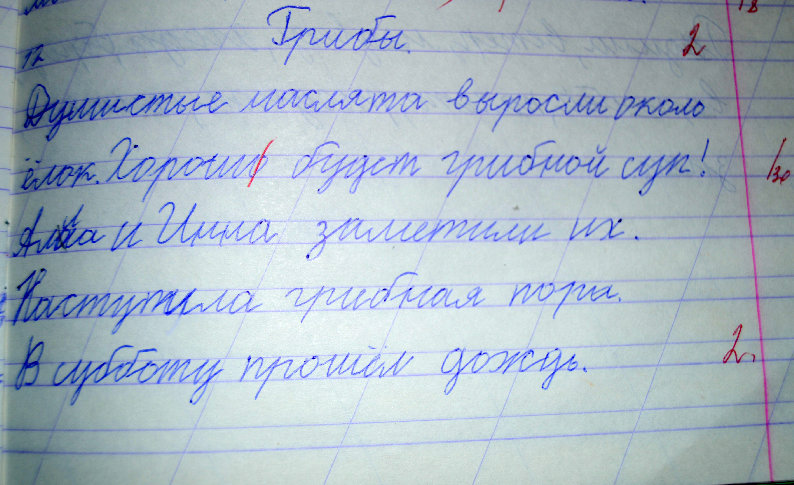 Грибы.
2
Душистые маслята выросли около
ёлок. Хороший будет грибной суп!
Алла и Инна заметили их.
Наступила грибная пора.
В субботу прошёл дождь.
2.